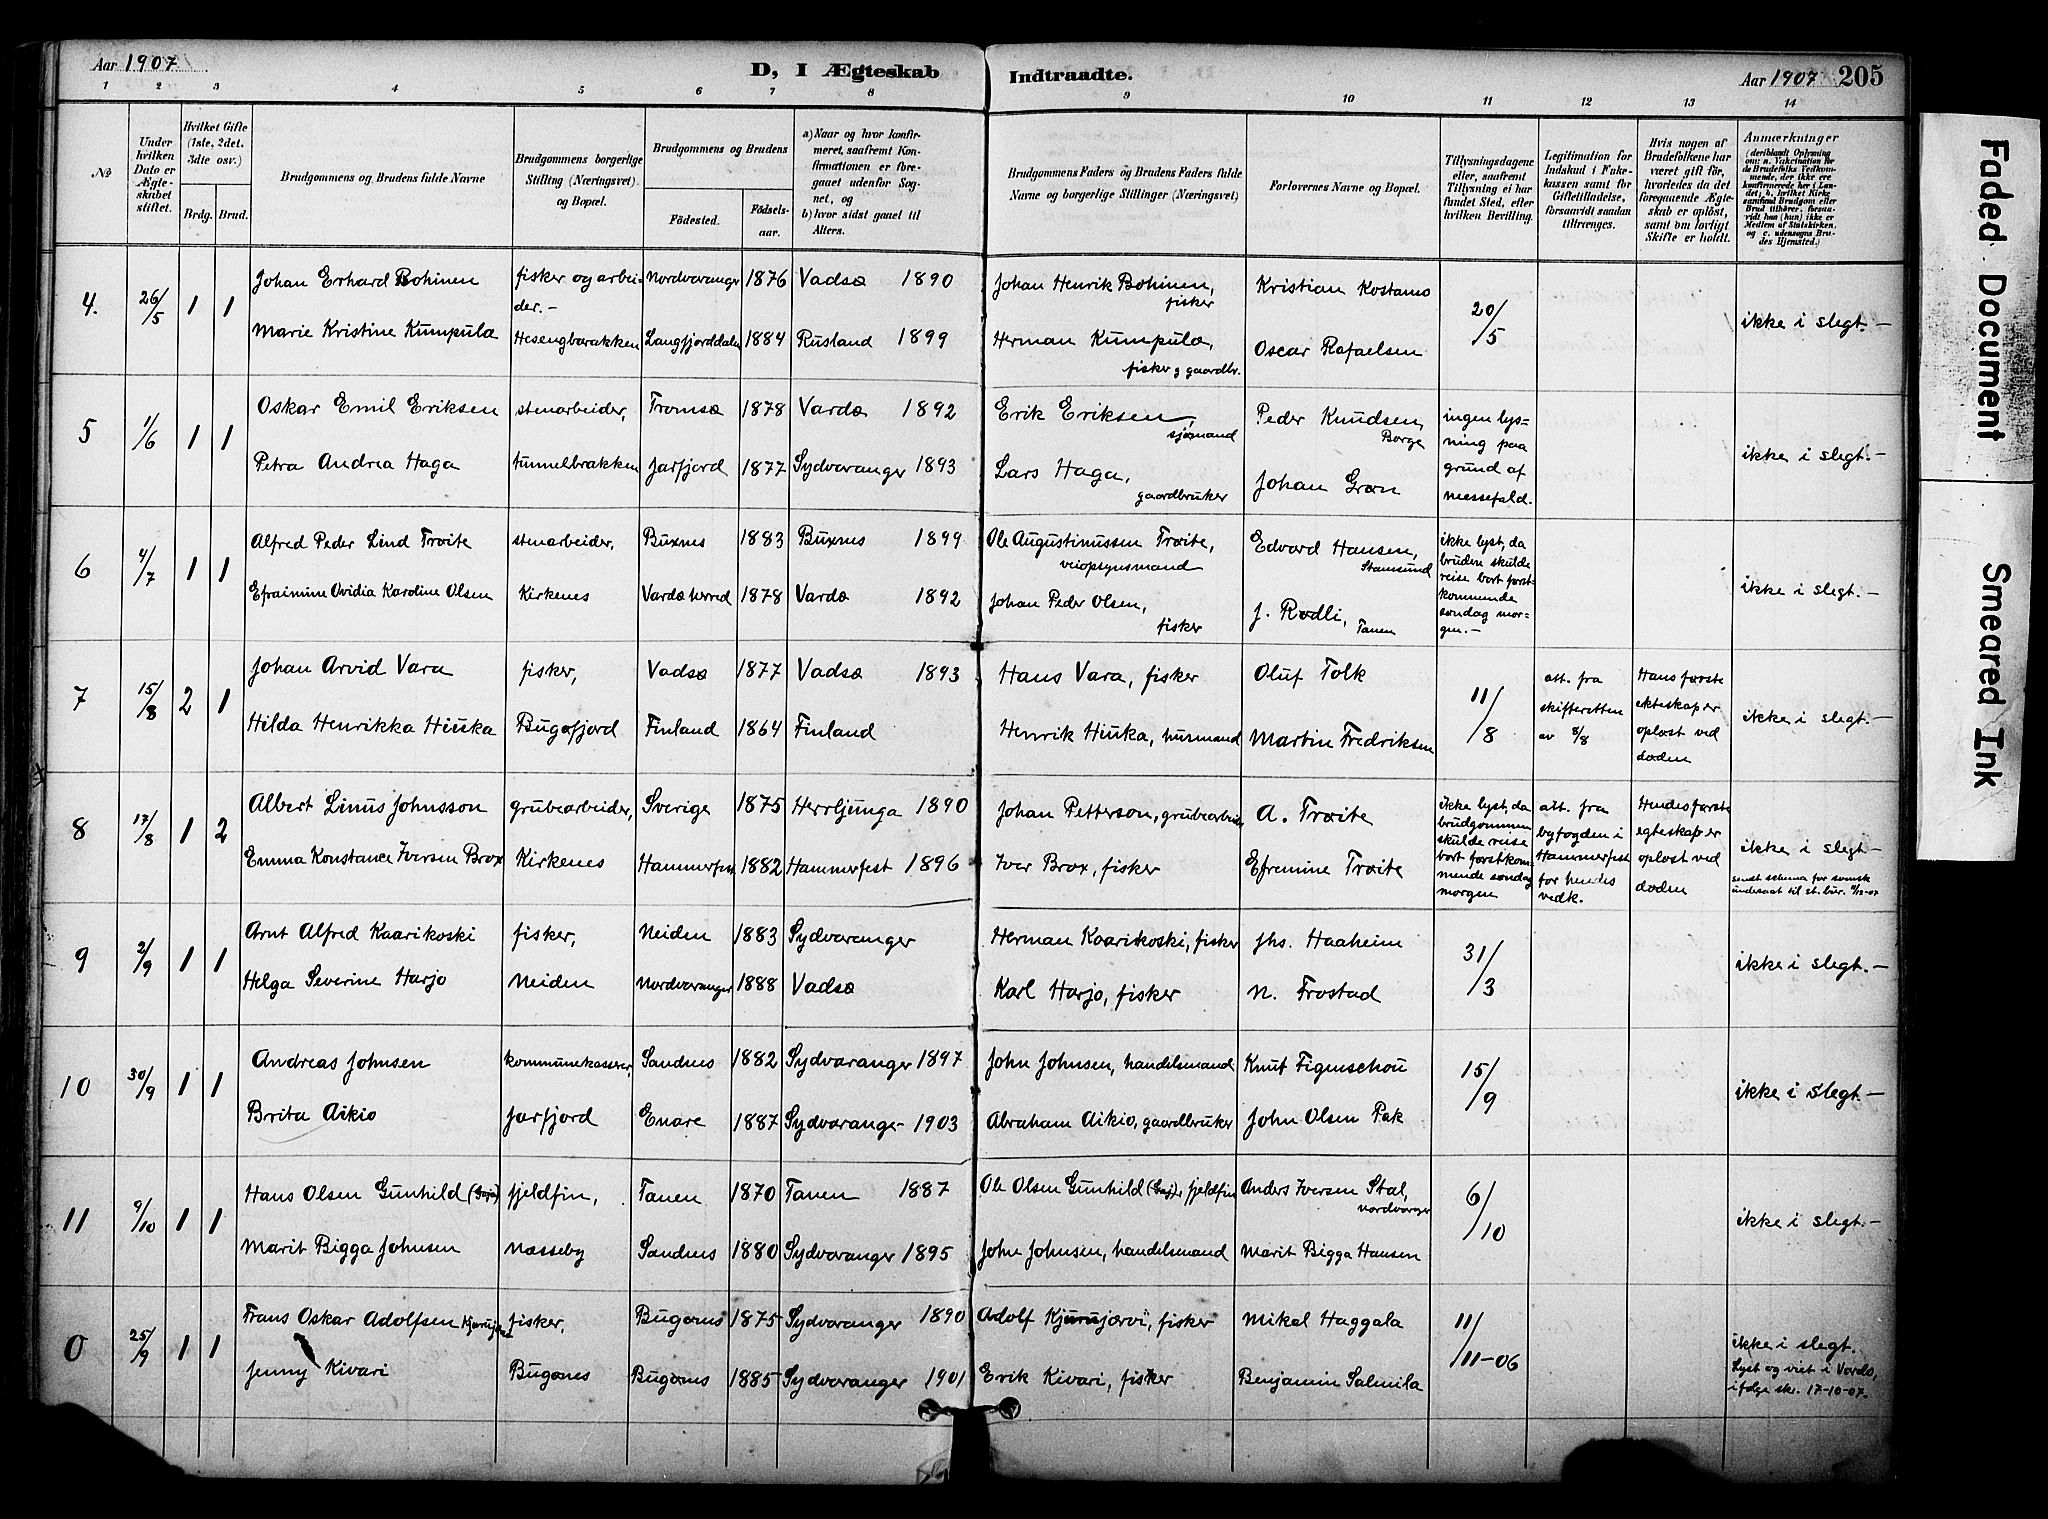 Aar 1907.
D, I Ægteskab
Indtraadte.
Aar 1907 205
1 2 3 4 5 6 7 8 9 10 11 12 13 14
№
Under hvilken Dato er Ægteskabet stiftet.
Hvilket Gifte (1ste, 2det, 3die osv.)
Brdg. Brud.
Brudgommens og Brudens fulde Navne
Brudgommens borgerlige Stilling (Næringsvei) og Bopæl.
Brudgommens og Brudens
Fødested.
Fødselsaar.
a) Naar og hvor konfirmeret, saafremt Konfirmationen er foregaaet udenfor Sognet, og
b) hvor sidst gaaet til Alters.
Brudgommens Faders og Brudens Faders fulde Navne og borgerlige Stillinger (Næringsvei)
Forlovernes Navne og Bopæl.
Tillysningsdagene eller, saafremt Tillysning ei har fundet Sted, efter hvilken Bevilling.
Legitimation for Indskud i Enkekassen samt for Giftetilladelse, forsaavidt saadan tiltrænges.
Hvis nogen af Brudefolkene har været gift før, hvorledes da det foregaaende Ægteskab er opløst, samt om lovligt Skifte er holdt.
Anmærkninger (deriblandt Oplysning om: a. Vakcination for de Brudefolks Vedkommende, der ikke ere konfirmerede her i Landet; b. hvilket Kirkesamfund Brudgom eller Brud tilhører, forsaavidt han (hun) ikke er Medlem af Statskirken, og c. udensogns Brudes Hjemsted.)
4. 26/5 1 1 Johan Erhard Bohinen fisker og arbeider.- Nordvaranger 1876 Vadsø 1890 Johan Henrik Bohinen, fisker Kristian Kostamo 20/5 ikke i slegt.-
Marie Kristine Kumpula Hesengbarakken Langfjorddalen 1884 Rusland 1899 Herman Kumpula, fisker g gaardbr. Oscar Rafaelsen
5 1/6 1 1 Oskar Emil Eriksen stenarbeider, Tromsø 1878 Vardø 1892 Erik Eriksen, sjømand Peder Knudsen, Borge ingen lysning paa grund af messefald. ikke i slegt.-
Petra Andrea Haga tunnelbrakken Jarfjord 1877 Sydvaranger 1893 Lars Haga, gaardbruker Johan Grøn
6 4/7 1 1 Alfred Peder Lind Trøite stenarbeider, Buxnes 1883 Buxnes 1899 Ole Augustinussen Trøite, veiopsynsmand Edvard Hansen, Stamsund ikke lyst, da bruden skulde reise bort førstkommende søndag morgen.- ikke i slegt.-
Efraimine Ovidia Karoline Olsen Kirkenes Vardø herred 1878 Vardø 1892 Johan Peder Olsen, fisker J. Rødli, Tanen
7 15/8 2 1 Johan Arvid Vara fisker, Vadsø 1877 Vadsø 1893 Hans Vara, fisker Oluf Tolk 11/8 att. fra skifteretten av 8/8 Hans første ekteskap er opløst ved døden ikke i slegt.-
Hilda Henrikka Hiuka Bugøfjord Finland 1864 Finland Henrik Hiuka, husmand Martin Fredriksen
8 17/8 1 2 Albert Linus Johnsson grubearbeider, Sverige 1875 Herrljunga 1890 Johan Petterson, grubearbeider A. Trøite ikke lyst, da brudgommen skulde reise bort førstkommende søndag morgen att. fra byfogden i Hammerfest for hendes vedk. Hendes første egteskap er opløst ved døden ikke i slegt- sendt schema for svensk undersaat til st. bur. 9/12-07
Emma Konstance Iversen Brox Kirkenes Hammerfest 1882 Hammerfest 1896 Iver Brox, fisker Efremine Trøite
9 2/9 1 1 Arnt Alfred Kaarikoski fisker, Neiden 1883 Sydvaranger Herman Kaarikoski, fisker Jhs. Haaheim 31/3 ikke i slegt.-
Helga Severine Harjo Neiden Nordvaranger 1888 Vadsø Karl Harjo, fisker N. Trostad
10 30/9 1 1 Andreas Johnsen kommunekasserer, Sandnes 1882 Sydvaranger 1897 John Johnsen, handelsmand Knut Figenschou 15/9 ikke i slegt-
Brita Aikio Jarfjord Enare 1887 Sydvaranger 1903 Abraham Aikio, gaardbruker John Olsen Pak
11 9/10 1 1 Hans Olsen Gunhild fjeldfin, Tanen 1870 Tanen 1887 Ole Olsen Gunhild fjeldfin Anders Iversen Stal, nordvarger 6/10 ikke i slegt.-
Marit Bigga Johnsen Næsseby Sandnes 1880 Sydvaranger 1895 John Johnsen, handelsmand Marit Bigga Hansen
0 25/9 1 1 Frans Oskar Adolfsen fisker, Bugønes 1875 Sydvaranger 1890 Adolf Kjurujarvi, fisker Mikal Haggala 11/11-06 ikke i slegt. Lyst og viet i Vardø, ifølge skr. 17-10-07.
Jenny Kivari Bugønes Bugønes 1885 Sydvaranger 1901 Erik Kivari, fisker Benjamin Salmila
Faded Document
Smeared Ink